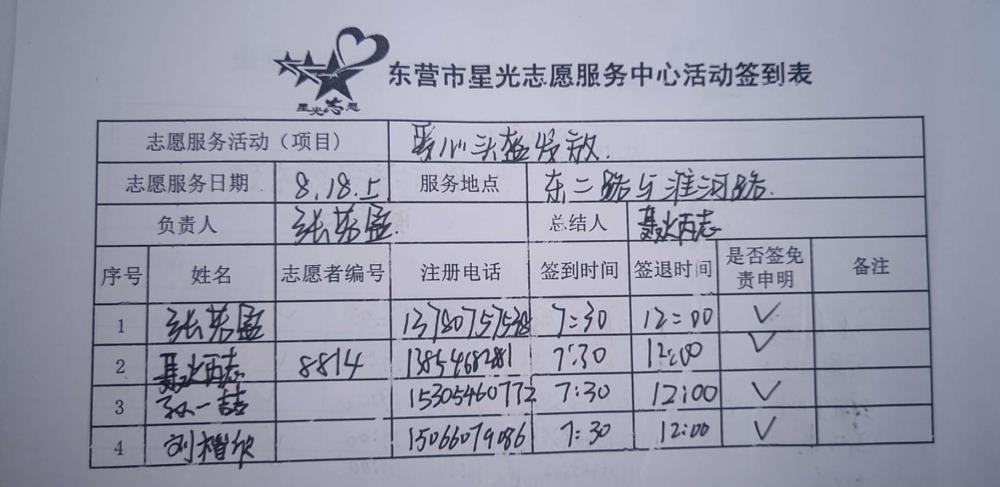 星光志愿
东营市星光志愿服务中心活动签到表
志愿服务活动（项目） 爱心头盔发放.
志愿服务日期 8.18.上 服务地点 东二路与淮河路.
负责人 张 总结人 聂志
序号 姓名 志愿者编号 注册电话 签到时间 签退时间 是否签免责申明 备注
1 张 13780757538 7:30 12:00 ✓
2 聂志 8814 1385468281 7:30 12:00 ✓
3 孙一喆 15305460772 7:30 12:00 ✓
4 刘 15066079086 7:30 12:00 ✓